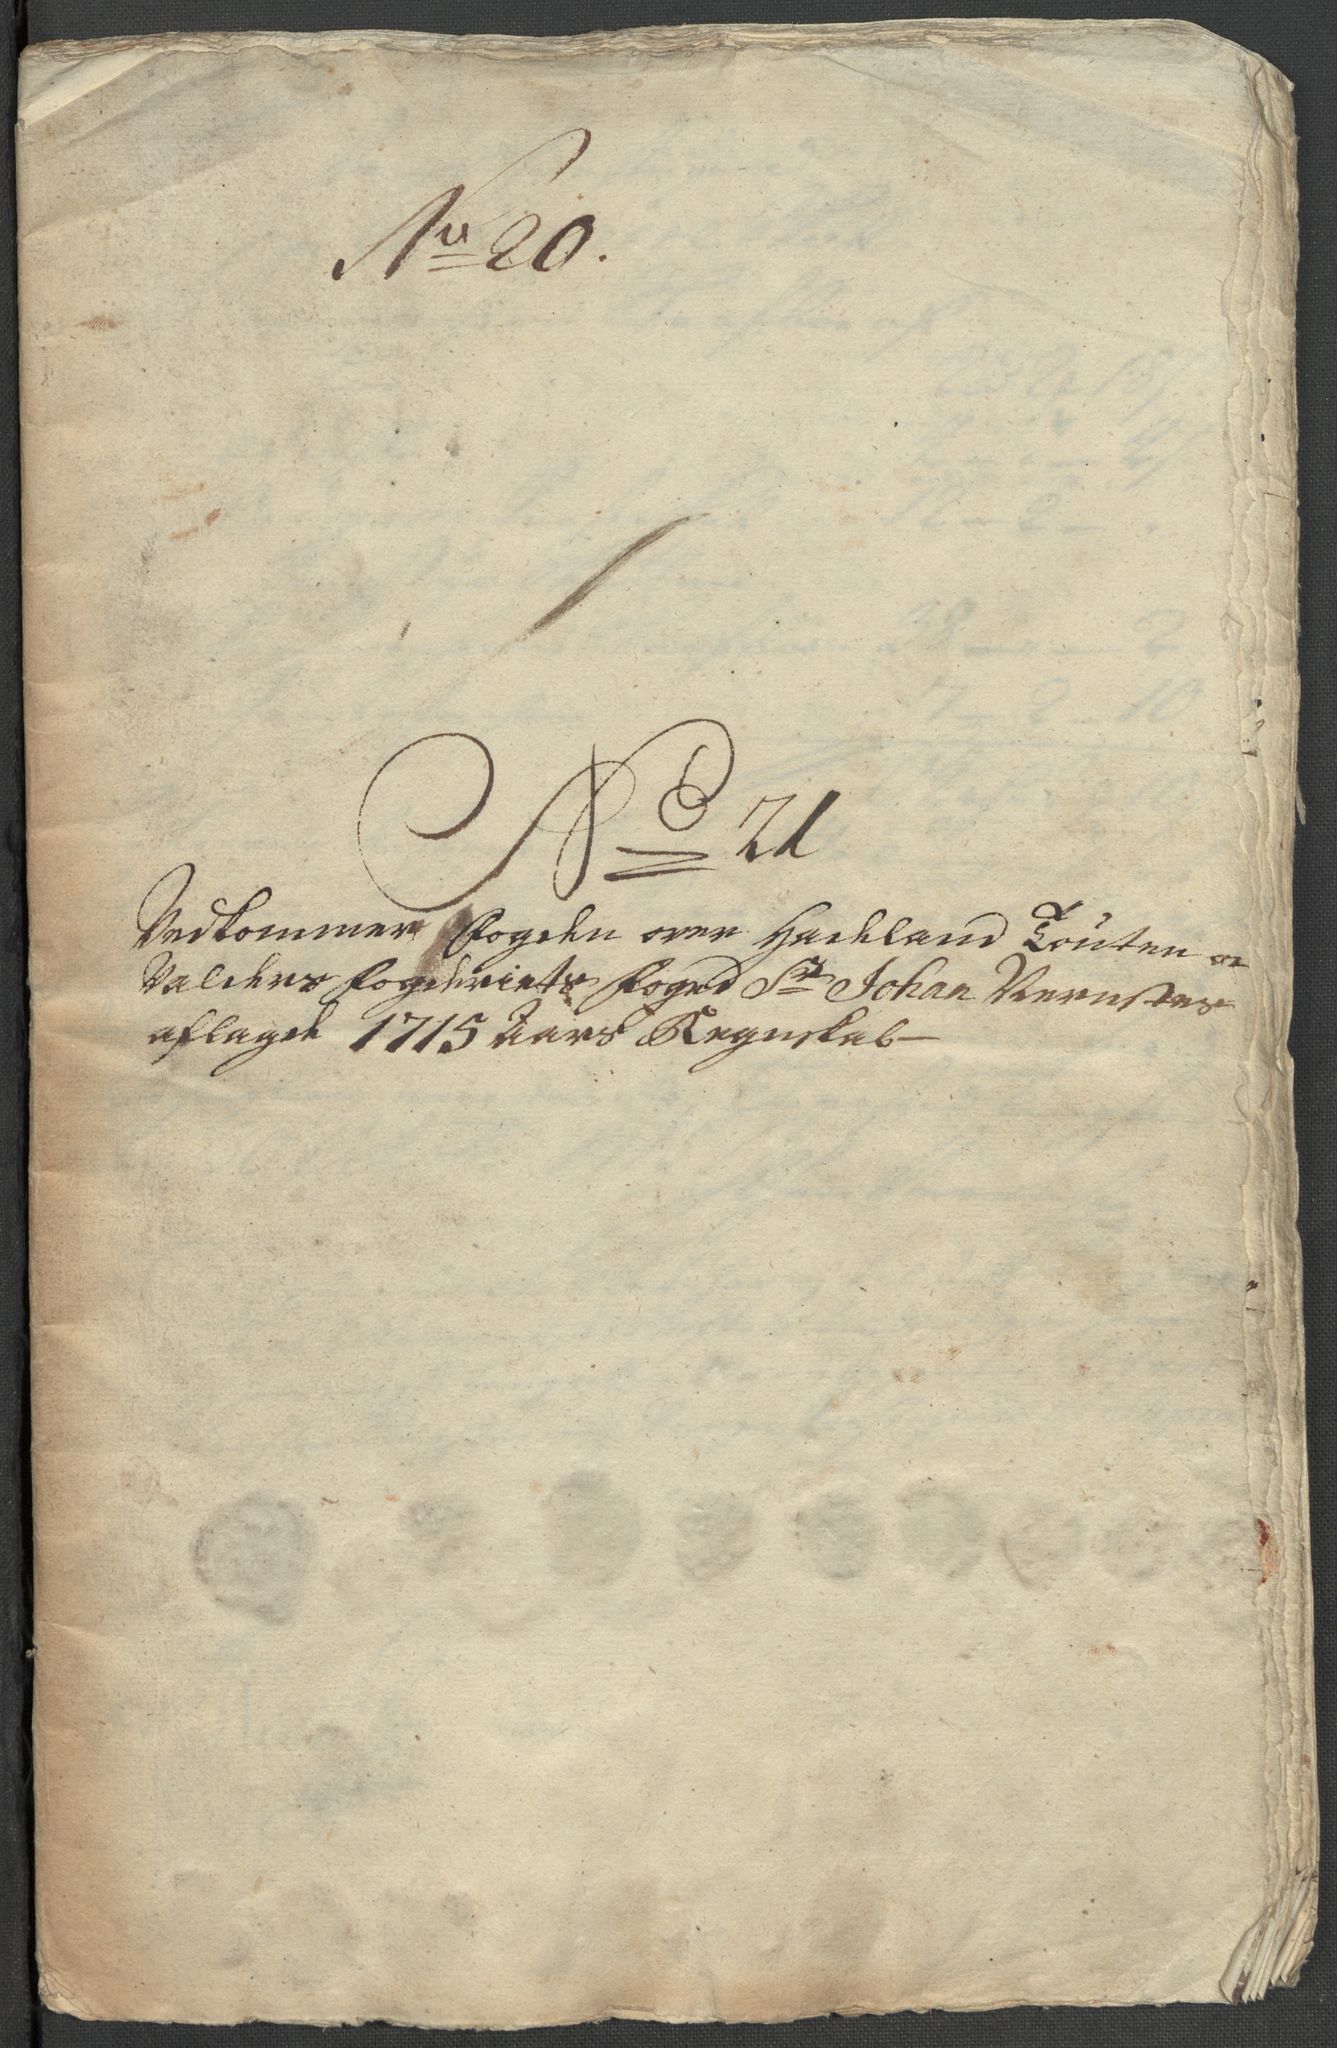 No 20.
No 21
Vedkommer Fogden over Hadeland Touten oc
Valders Fogderiets Foged Sr Johan
aflagde 1715 Aars Regnskab